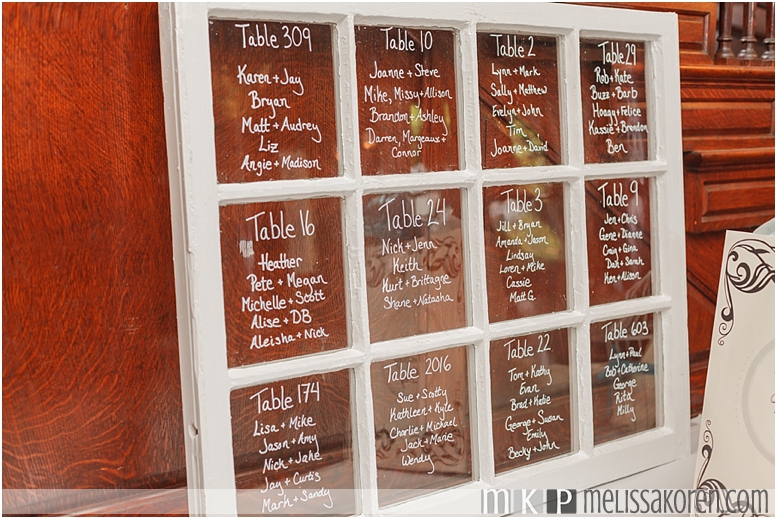 Table 309
Karen + Jay
Bryan
Matt + Audrey
Liz
Angie + Madison
Table 10
Joanne + Steve
Mike, Missy + Allison
Brandon + Ashley
Darren, Margeaux +
Connor
Table 2
Lynn + Mark
Sally + Matthew
Evelyn + John
Tim
Joanne + David
Table 29
Rob + Kate
Buzz + Barb
Hoagy + Felice
Kassie + Brendon
Ben
Table 16
Heather
Pete + Megan
Michelle + Scott
Alise + DB
Aleisha + Nick
Table 24
Nick + Jenn
Keith
Kurt + Brittagne
Shane + Natasha
Table 3
Jill + Bryan
Amanda + Jason
Lindsay
Loren + Mike
Cassie
Matt G.
Table 9
Jen + Chris
Gene + Dianne
Craig + Gina
Dax + Sarah
Ken + Alison
Table 174
Lisa + Mike
Jason + Amy
Nick + Jake
Jay + Curtis
Mark + Sandy
Table 2016
Sue + Scotty
Kathleen + Kyle
Charlie + Michael
Jack + Marie
Wendy
Table 22
Tom + Kathy
Evan
Brad + Katie
George + Susan
Emily
Becky + John
Table 603
Lynn + Paul
Bob + Catherine
George
Rita
Milly
MKP melissakoren.com